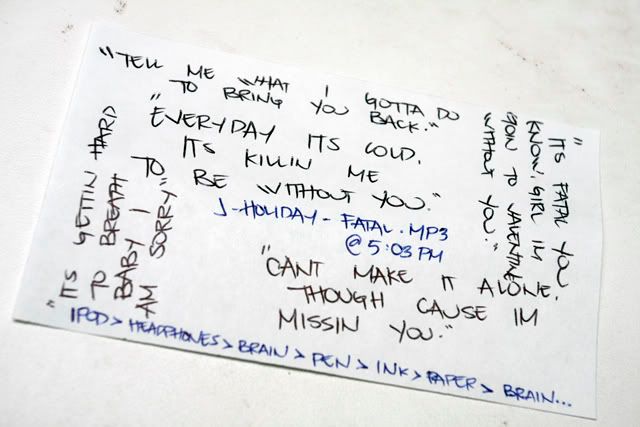 "TELL ME WHAT I GOTTA DO
TO BRING YOU BACK."
"EVERYDAY ITS COLD.
ITS KILLIN ME
TO BE WITHOUT YOU."
J-HOLIDAY - FATAL.MP3
@ 5:03 PM
"CANT MAKE IT ALONE.
THOUGH CAUSE IM
MISSIN YOU."
"ITS GETTIN HARD
TO BREATH
BABY I
AM SORRY"
"ITS FATAL YOU
KNOW. GIRL IM
GOIN TO VALENTINE
WITHOUT YOU."
IPOD > HEADPHONES > BRAIN > PEN > INK > PAPER > BRAIN...